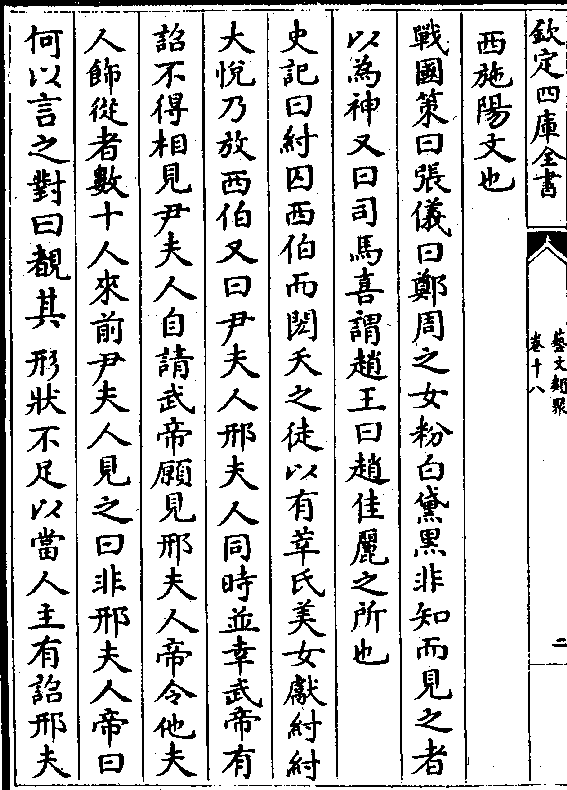 欽定四庫全書
藝文類聚
卷十八
二
西施陽文也
戰國策曰張儀曰鄭周之女粉白黛黒非知而見之者
以為神又曰司馬喜謂趙王曰趙佳麗之所也
史記曰紂囚西伯而閎夭之徒以有莘氏美女獻紂紂
大悅乃放西伯又曰尹夫人邢夫人同時並幸武帝有
詔不得相見尹夫人自請武帝願見邢夫人帝令他夫
人飾從者數十人來前尹夫人見之曰非邢夫人帝曰
何以言之對曰覩其形狀不足以當人主有詔邢夫